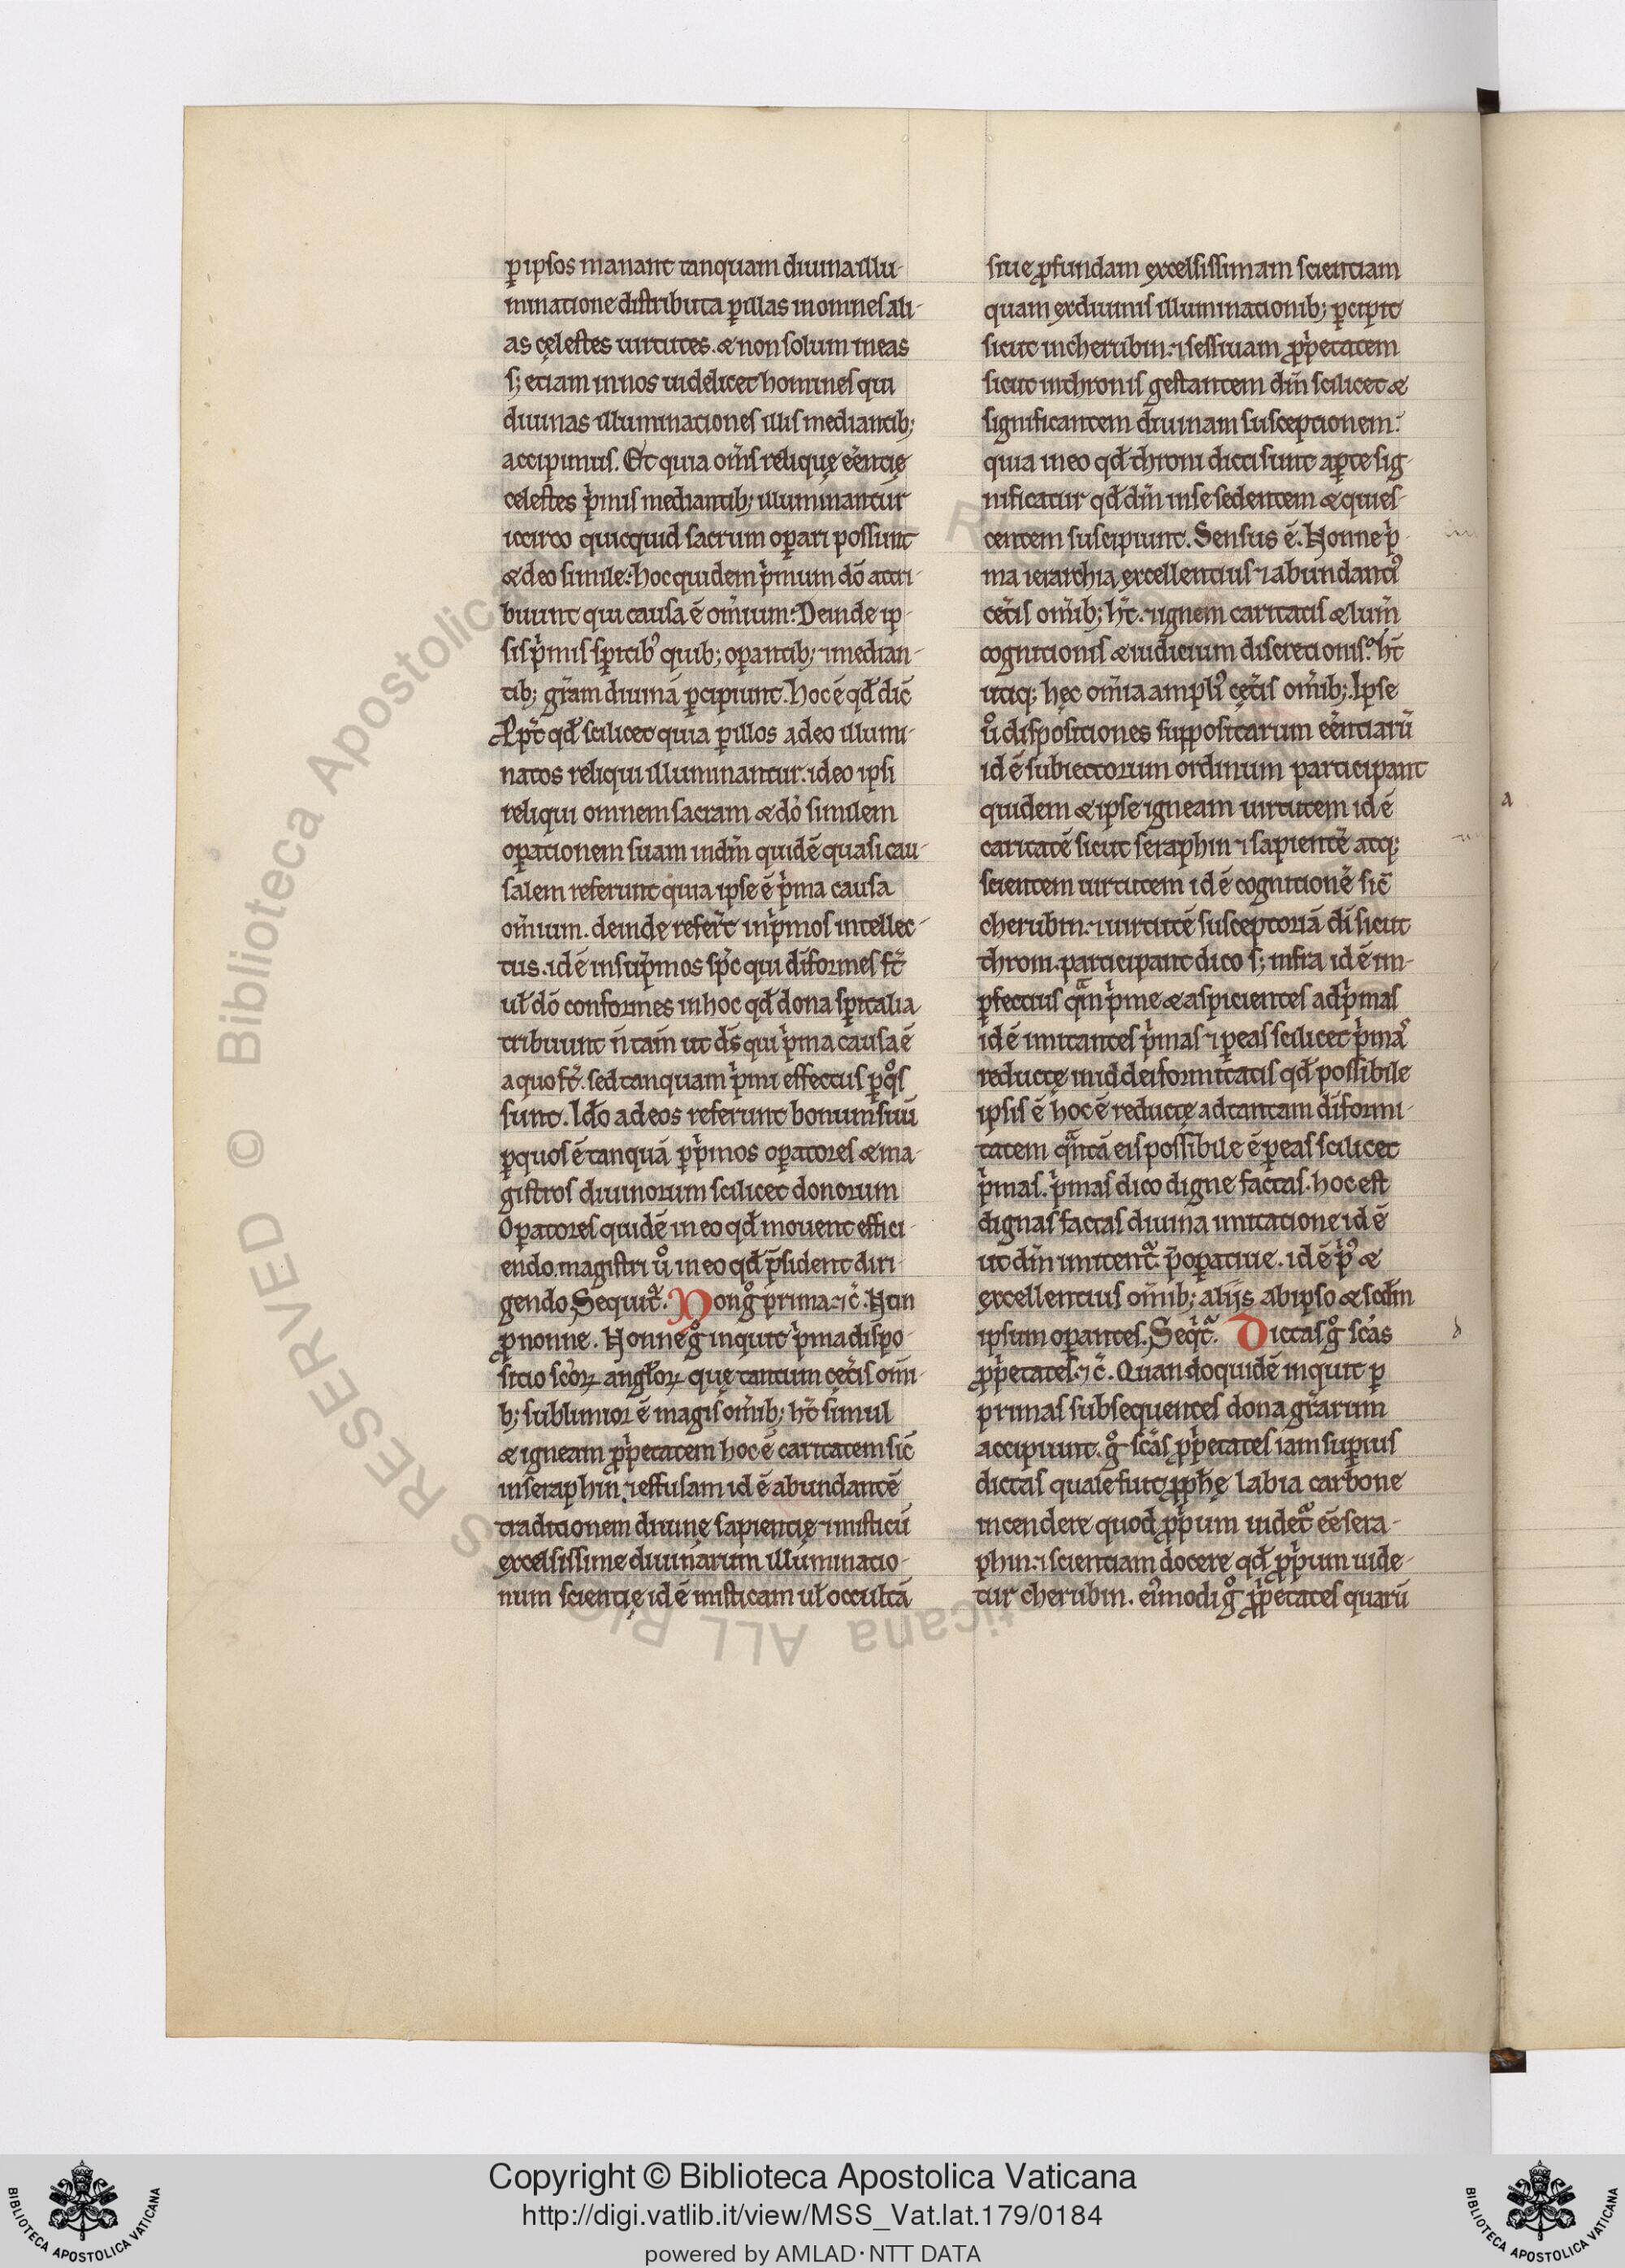 p̱ ipsos manant tanquam diuina illu-
minatione distributa p̱ illas in omnes ali-
as cęlestes uirtutes. & non solum in eas
s; etiam in nos uidelicet homines qui
diuinas illuminationes illis mediantib;
accipimus. Et quia om̄s reliquę eēntię
celestes p̍mis mediantib; illuminantur
iccirco quicquid sacrum op̱ari possunt
& deo simile: hoc quidem p̍mum dō attri-
buunt qui causa ē om̄ium: Deinde ip-
sis p̍mis sp̄ritibꝰ quib; op̱antib; ⁊ median-
tib; gr̄am diuinā p̱cipiunt. hoc ē qđ dic̄
Prpt̄ qđ scilicet quia p̱ illos a deo illumi-
natos reliqui illuminantur. ideo ipsi
reliqui omnem sacram & dō similem
op̱ationem suam in dn̄m quidē quasi cau-
salem referunt quia ipse ē p̍ma causa
om̄ium. deinde refer̄t in p̍mos intellec-
tus. id ē in sup̍mos sp̄c qui dīformes st̄
uł dō conformes in hoc qđ dona sp̄ritalia
tribuunt n̄ tam̄ ut ds̄ qui p̍ma causa ē
a quo st̄. sed tanquam p̍mi effectus p̱ qͦs
sunt. Ido ad eos referunt bonum suū
p̱ quos ē tanquā p̱ p̍mos op̱atores & ma-
gistros diuinorum scilicet donorum
Op̱atores quidē in eo qđ mouent effici-
endo. magistri ůo in eo qđ p̄sident diri-
gendo. Sequit̄. Non gͦ prima ⁊c̄. Hon
ꝓ nonne. Honne gͦ inquit p̍ma dispo-
sitio scōꝝ angłoꝝ quę tantum cęt̄is om̄i-
b; sublimior ē magis om̄ib; ht̄ simul
& igneam ꝓp̍etatem hoc ē caritatem sic̄
in seraphin. ⁊ effusam id ē abundantē
traditionem diuinę sapientię ⁊ misticū
excelsissime diuinarum illuminatio-
num scientię id ē misticam uł occultā
siue ꝓfundam excelsissimam scientiam
quam ex diuinis illuminationib; p̱cipit
sicut in cherubin. ⁊ sessiuam ꝓp̍etatem
sicut in thronis gestantem dn̄m scilicet &
significantem diuinam susceptionem:
quia in eo qđ throni dicti sunt ap̱te sig-
nificatur qđ dn̄m in se sedentem & quies-
centem suscipiunt. Sensus ē. Honne p̍-
ma ierarchia excellentius ⁊ abundantiꝰ
cet̄is om̄ib; ht̄. ⁊ ignem caritatis & lum̄
cognitionis & iudicium discretionis. ht̄
utiq; hęc om̄ia ampliꝰ cęt̄is om̄ib;. Ipse
ůo dispositiones suppositarum eēntiarū
id ē subiectorum ordinum participant
quidem & ipse igneam uirtutem id ē
caritatē sicut seraphin ⁊ sapientē atq;
scientem uirtutem id ē cognitionē sic̄
cherubin. ⁊ uirtutē susceptoriā di sicut
throni. participant dico s; infra id ē im-
p̱fectius qᵃm p̍me & aspicientes ad p̍mas
id ē imitantes p̍mas ⁊ p̱ eas scilicet p̍mas
reductę in id deiformitatis qđ possibile
ipsis ē hoc ē reductę ad tantam dīformi-
tatem qᵃntā eis possibile ē p̱ eas scilicet
p̍mas. p̍mas dico digne factas. hoc est
dignas factas diuina imitatione id ē
ut dn̄m imitent̄. p̄op̱atiue. id ē p̍ꝰ &
excellentius om̄ib; alijs ab ipso & scđm
ipsum op̱antes. Seqt̄. Dictas gͦ scās
ꝓp̍etates ⁊c̄. Quandoquidē inquit p̱
primas subsequentes dona gr̄arum
accipiunt. gͦ scās ꝓp̍etates iam sup̱ius
dictas quale fuit ꝓph̄ę labia carbone
incendere quod ꝓp̍um uidet̄ eē sera-
phin. ⁊ scientiam docere qđ ꝓp̍um uide-
tur cherubin. eiꝰmodi gͦ ꝓp̍etates quarū
a
b
Copyright © Biblioteca Apostolica Vaticana
http://digi.vatlib.it/view/MSS_Vat.lat.179/0184
powered by AMLAD·NTT DATA
BIBLIOTECA APOSTOLICA VATICANA
BIBLIOTECA APOSTOLICA VATICANA
© Biblioteca Apostolica Vaticana ALL RIGHTS RESERVED